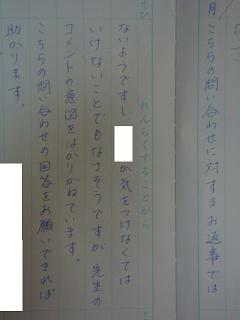 月 こちらの問い合わせに対するお返事では
れんらくすることがら
ないようですし、 が気をつけなくては
いけないことでもなさそうですが先生の
コメントの意図をはかりかねています。
こちらの問い合わせの回答をお願いできれば
助かります。